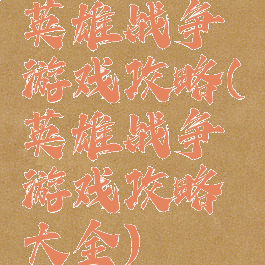 英雄战争
游戏攻略(
英雄战争
游戏攻略
大全)